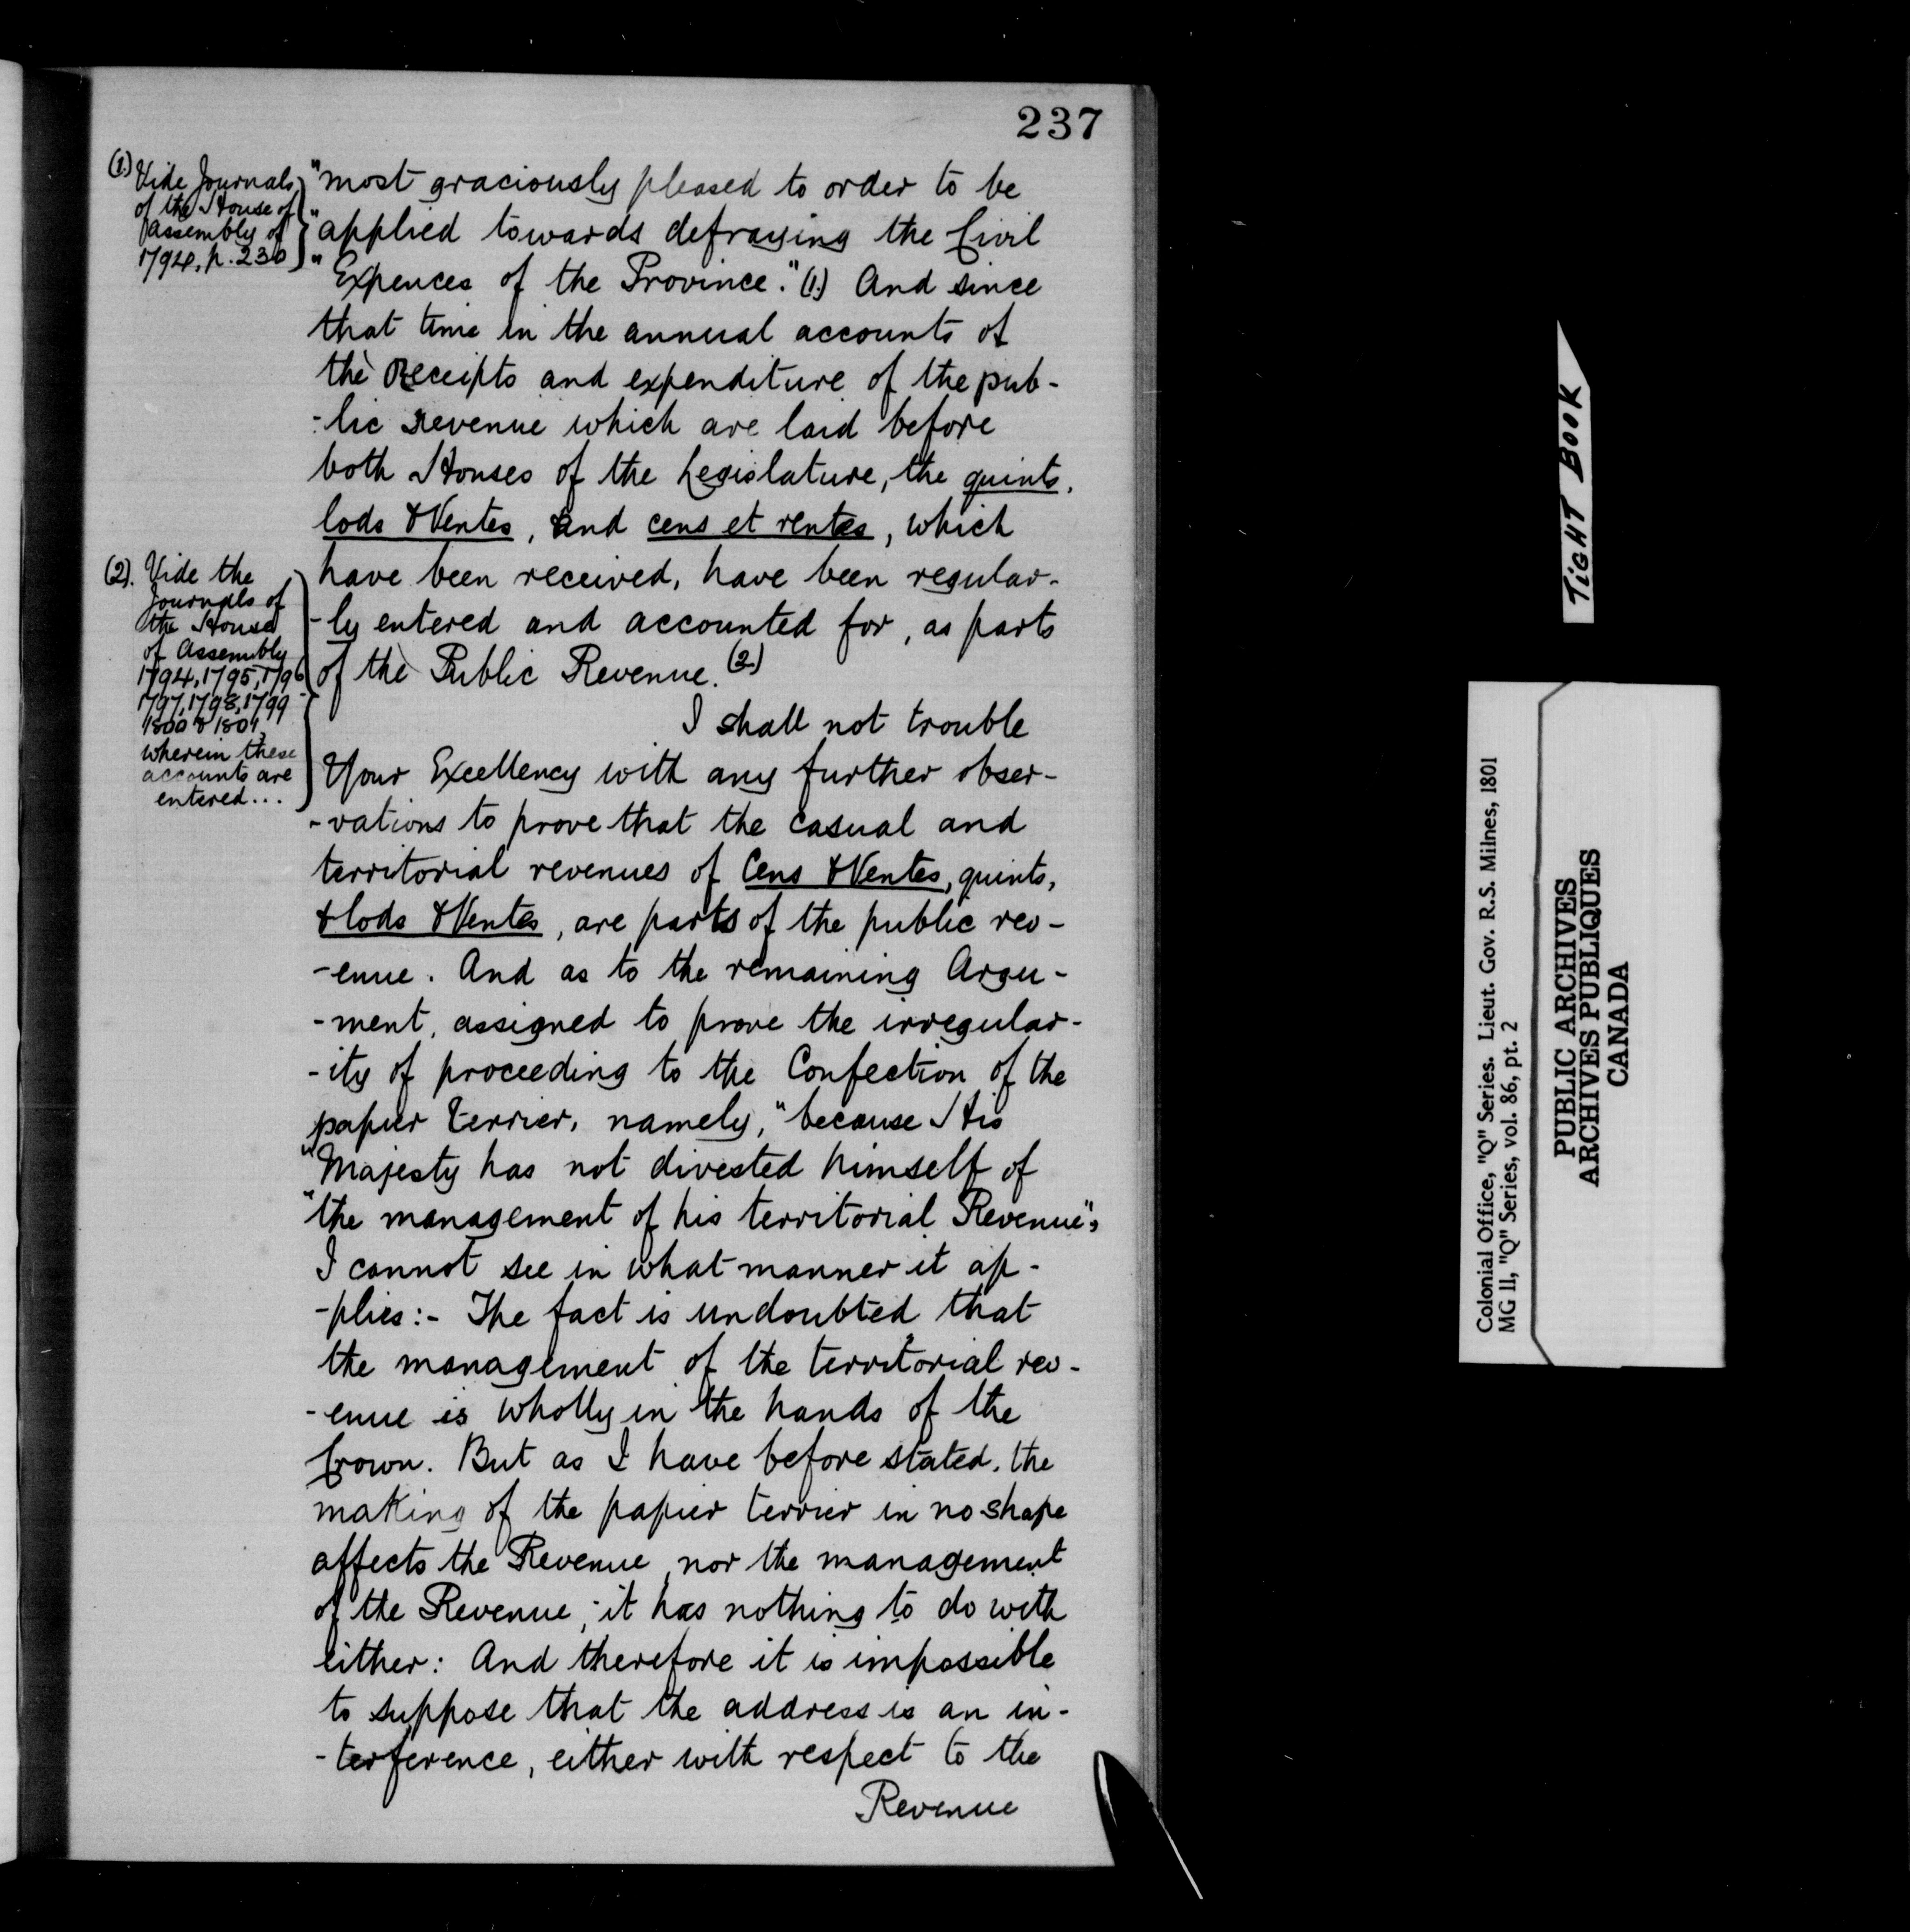 237
(1.) Vide Journals
of the House of
Assembly of
1794, p. 230
"most graciously pleased to order to be
"applied towards defraying the Civil
"Expences of the Province." (1.) And since
that time in the annual accounts of
the Receipts and expenditure of the pub-
-lic revenue which are laid before
both Houses of the Legislature, the quints,
lods & Ventes, and cens et rentes, which
have been received, have been regular-
-ly entered and accounted for, as parts
of the Public Revenue. (2.)
(2). Vide the
Journals of
the House
of Assembly
1794, 1795, 1796
1797, 1798, 1799
1800 & 1801,
wherein these
accounts are
entered...
I shall not trouble
Your Excellency with any further obser-
-vations to prove that the casual and
territorial revenues of Cens & Ventes, quints,
& lods & Ventes, are parts of the public rev-
-enue. And as to the remaining Argu-
-ment, assigned to prove the irregular-
-ity of proceeding to the Confection of the
papier terrier, namely, "because His
"Majesty has not divested himself of
"the management of his territorial Revenue",
I cannot see in what manner it ap-
-plies:- The fact is undoubted that
the management of the territorial rev-
-enue is wholly in the hands of the
Crown. But as I have before stated, the
making of the papier terrier in no shape
affects the Revenue, nor the management
of the Revenue; it has nothing to do with
either: And therefore it is impossible
to suppose that the address is an in-
-terference, either with respect to the
Revenue
TIGHT BOOK
Colonial Office, "Q" Series. Lieut. Gov. R.S. Milnes, 1801
MG 11, "Q" Series, vol. 86, pt. 2
PUBLIC ARCHIVES
ARCHIVES PUBLIQUES
CANADA